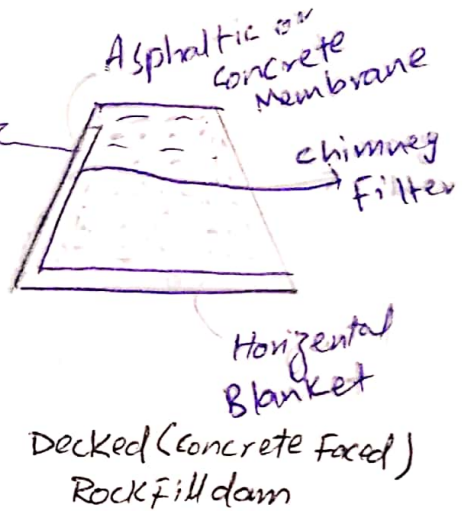 Asphaltic or
concrete
Membrane
chimney
Filter
Horizental
Blanket
Decked (concrete Faced)
Rockfill dam